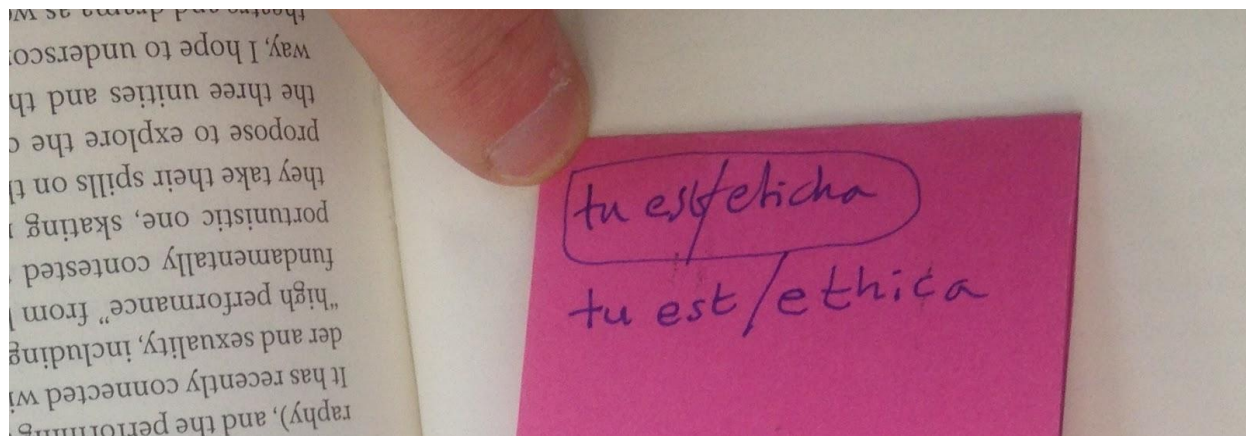 tu est/eticha
tu est/ethica
raphy), and the performing
It has recently connected wi
der and sexuality, including
"high performance" from
fundamentally contested
portunistic one, skating
they take their spills on th
propose to explore the c
the three unities and th
way, I hope to undersco
theatre and drama as we